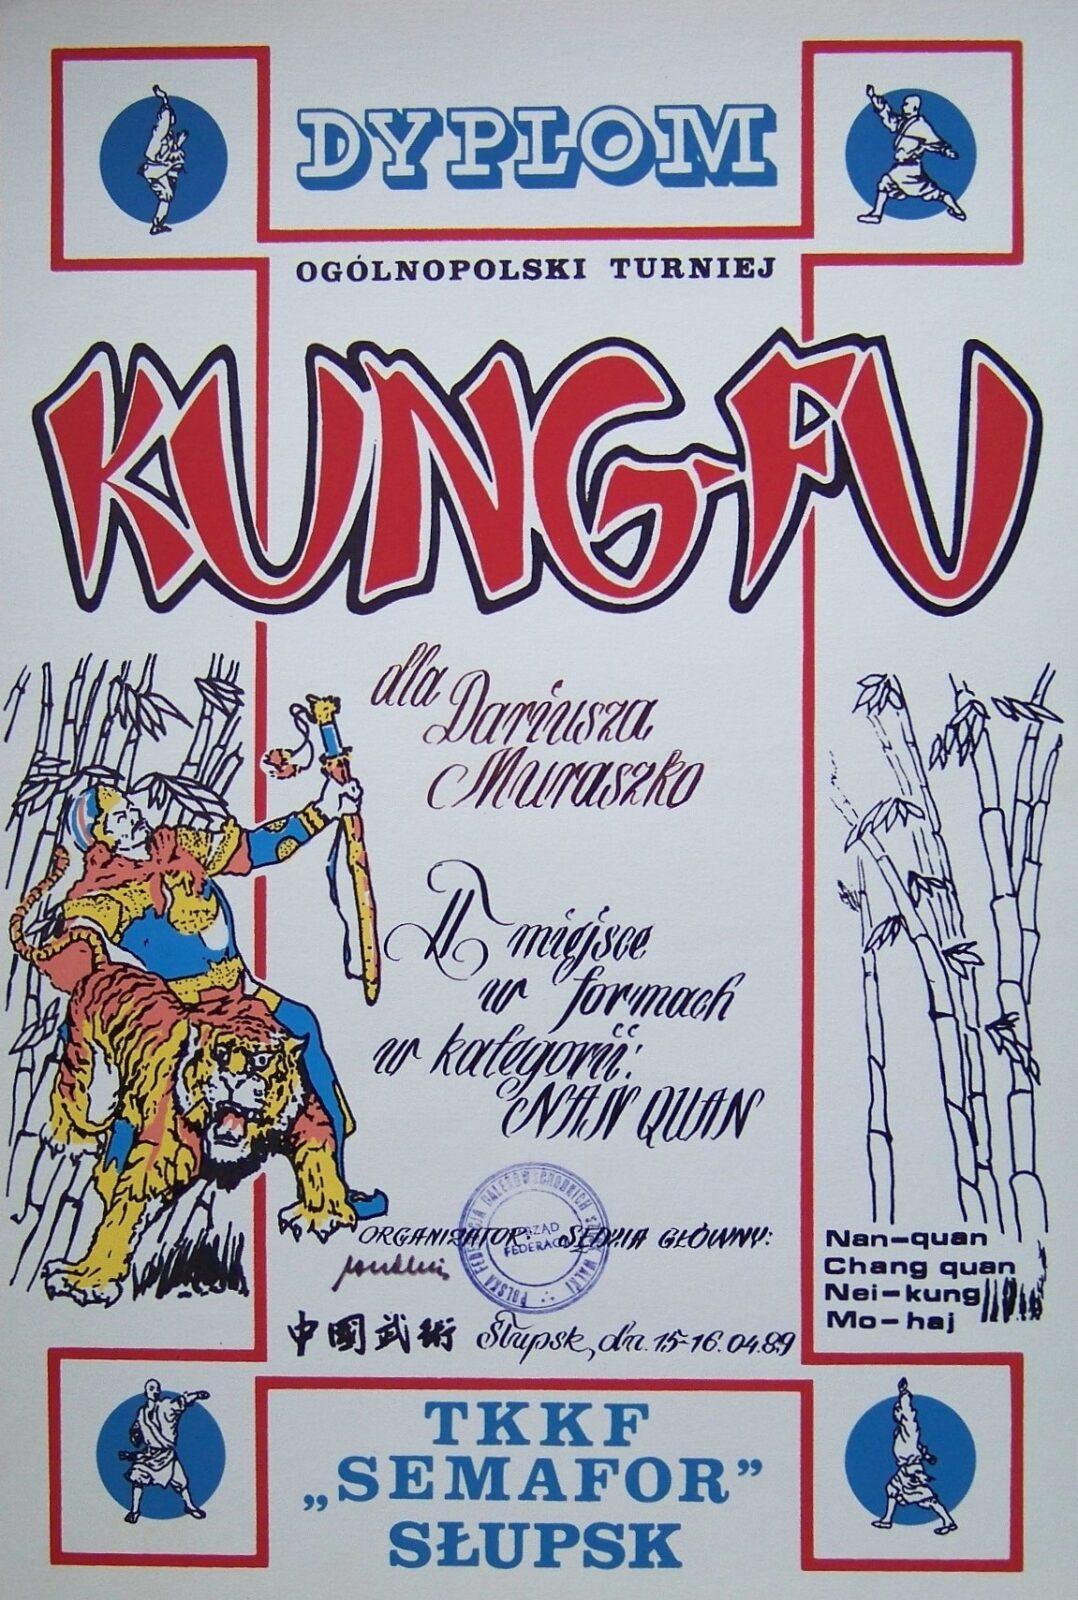 DYPLOM
OGÓLNOPOLSKI TURNIEJ
KUNG-FU
dla Dariusza
Muraszko
II miejsce
w formach
w kategorii:
NAN QUAN
ORGANIZATOR: SĘDZIA GŁÓWNY:
POLSKA FEDERACJA DALEKOWSCHODNICH SZTUK WALKI
ZARZĄD
FEDERACJI
Nan-quan
Chang quan
Nei-kung
Mo-haj
中國武術 Słupsk, dn. 15-16.04.89
TKKF
„SEMAFOR”
SŁUPSK